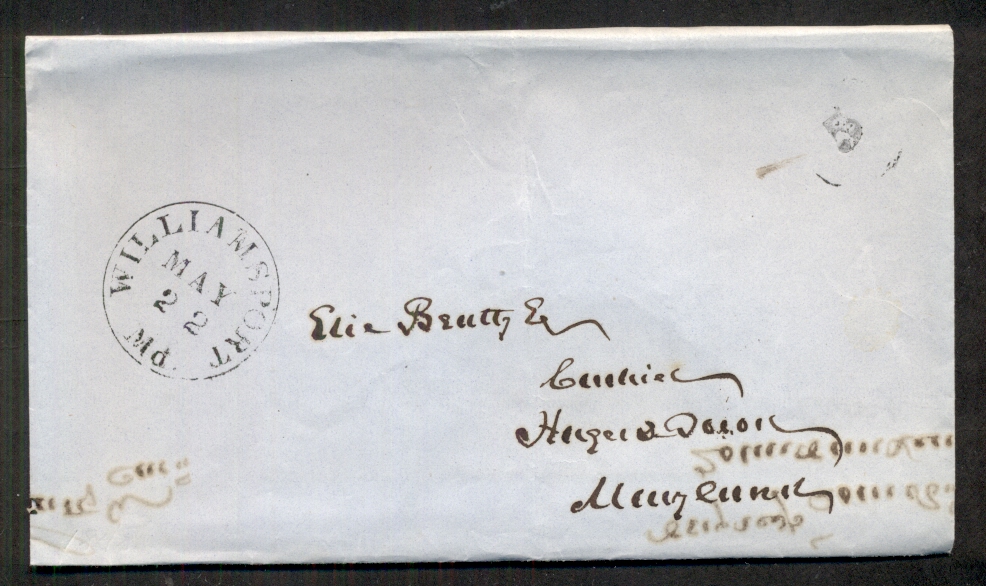 WILLIAMSPORT MD.
MAY
22
Elie Beatty Esq
Cashier
Hagers Town
Maryland